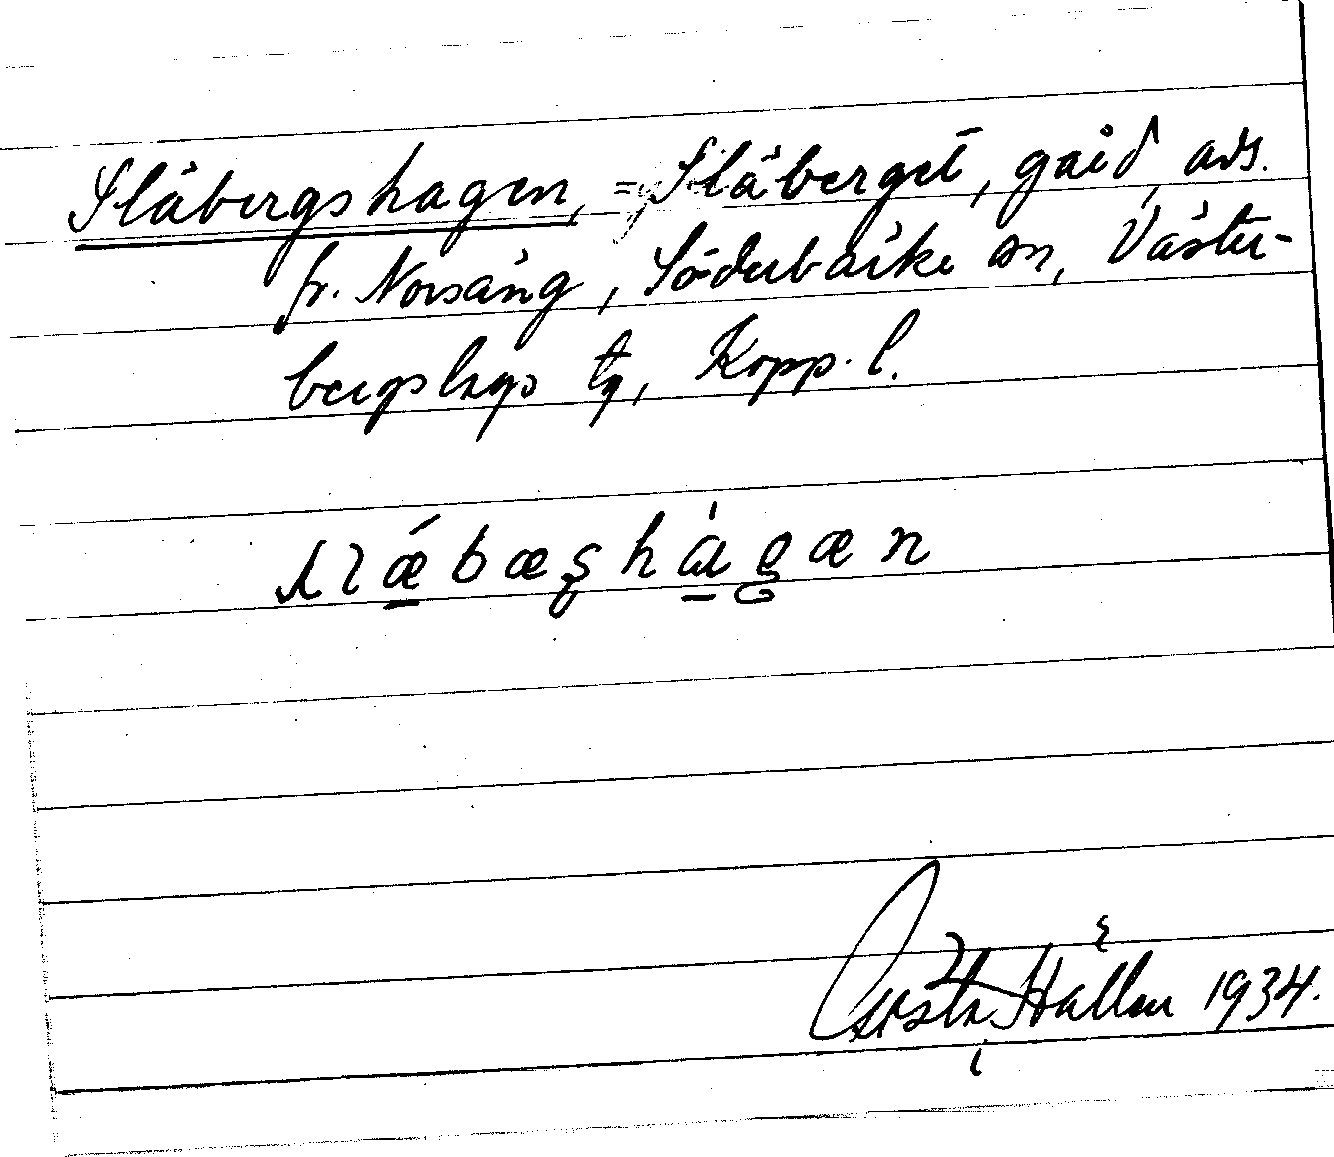 Slåbergshagen, = Slåberget, gård, avs.
fr. Norsång, Söderbärke sn, Väster-
bergslags tg, Kopp. l.
Gösta Hällen 1934.